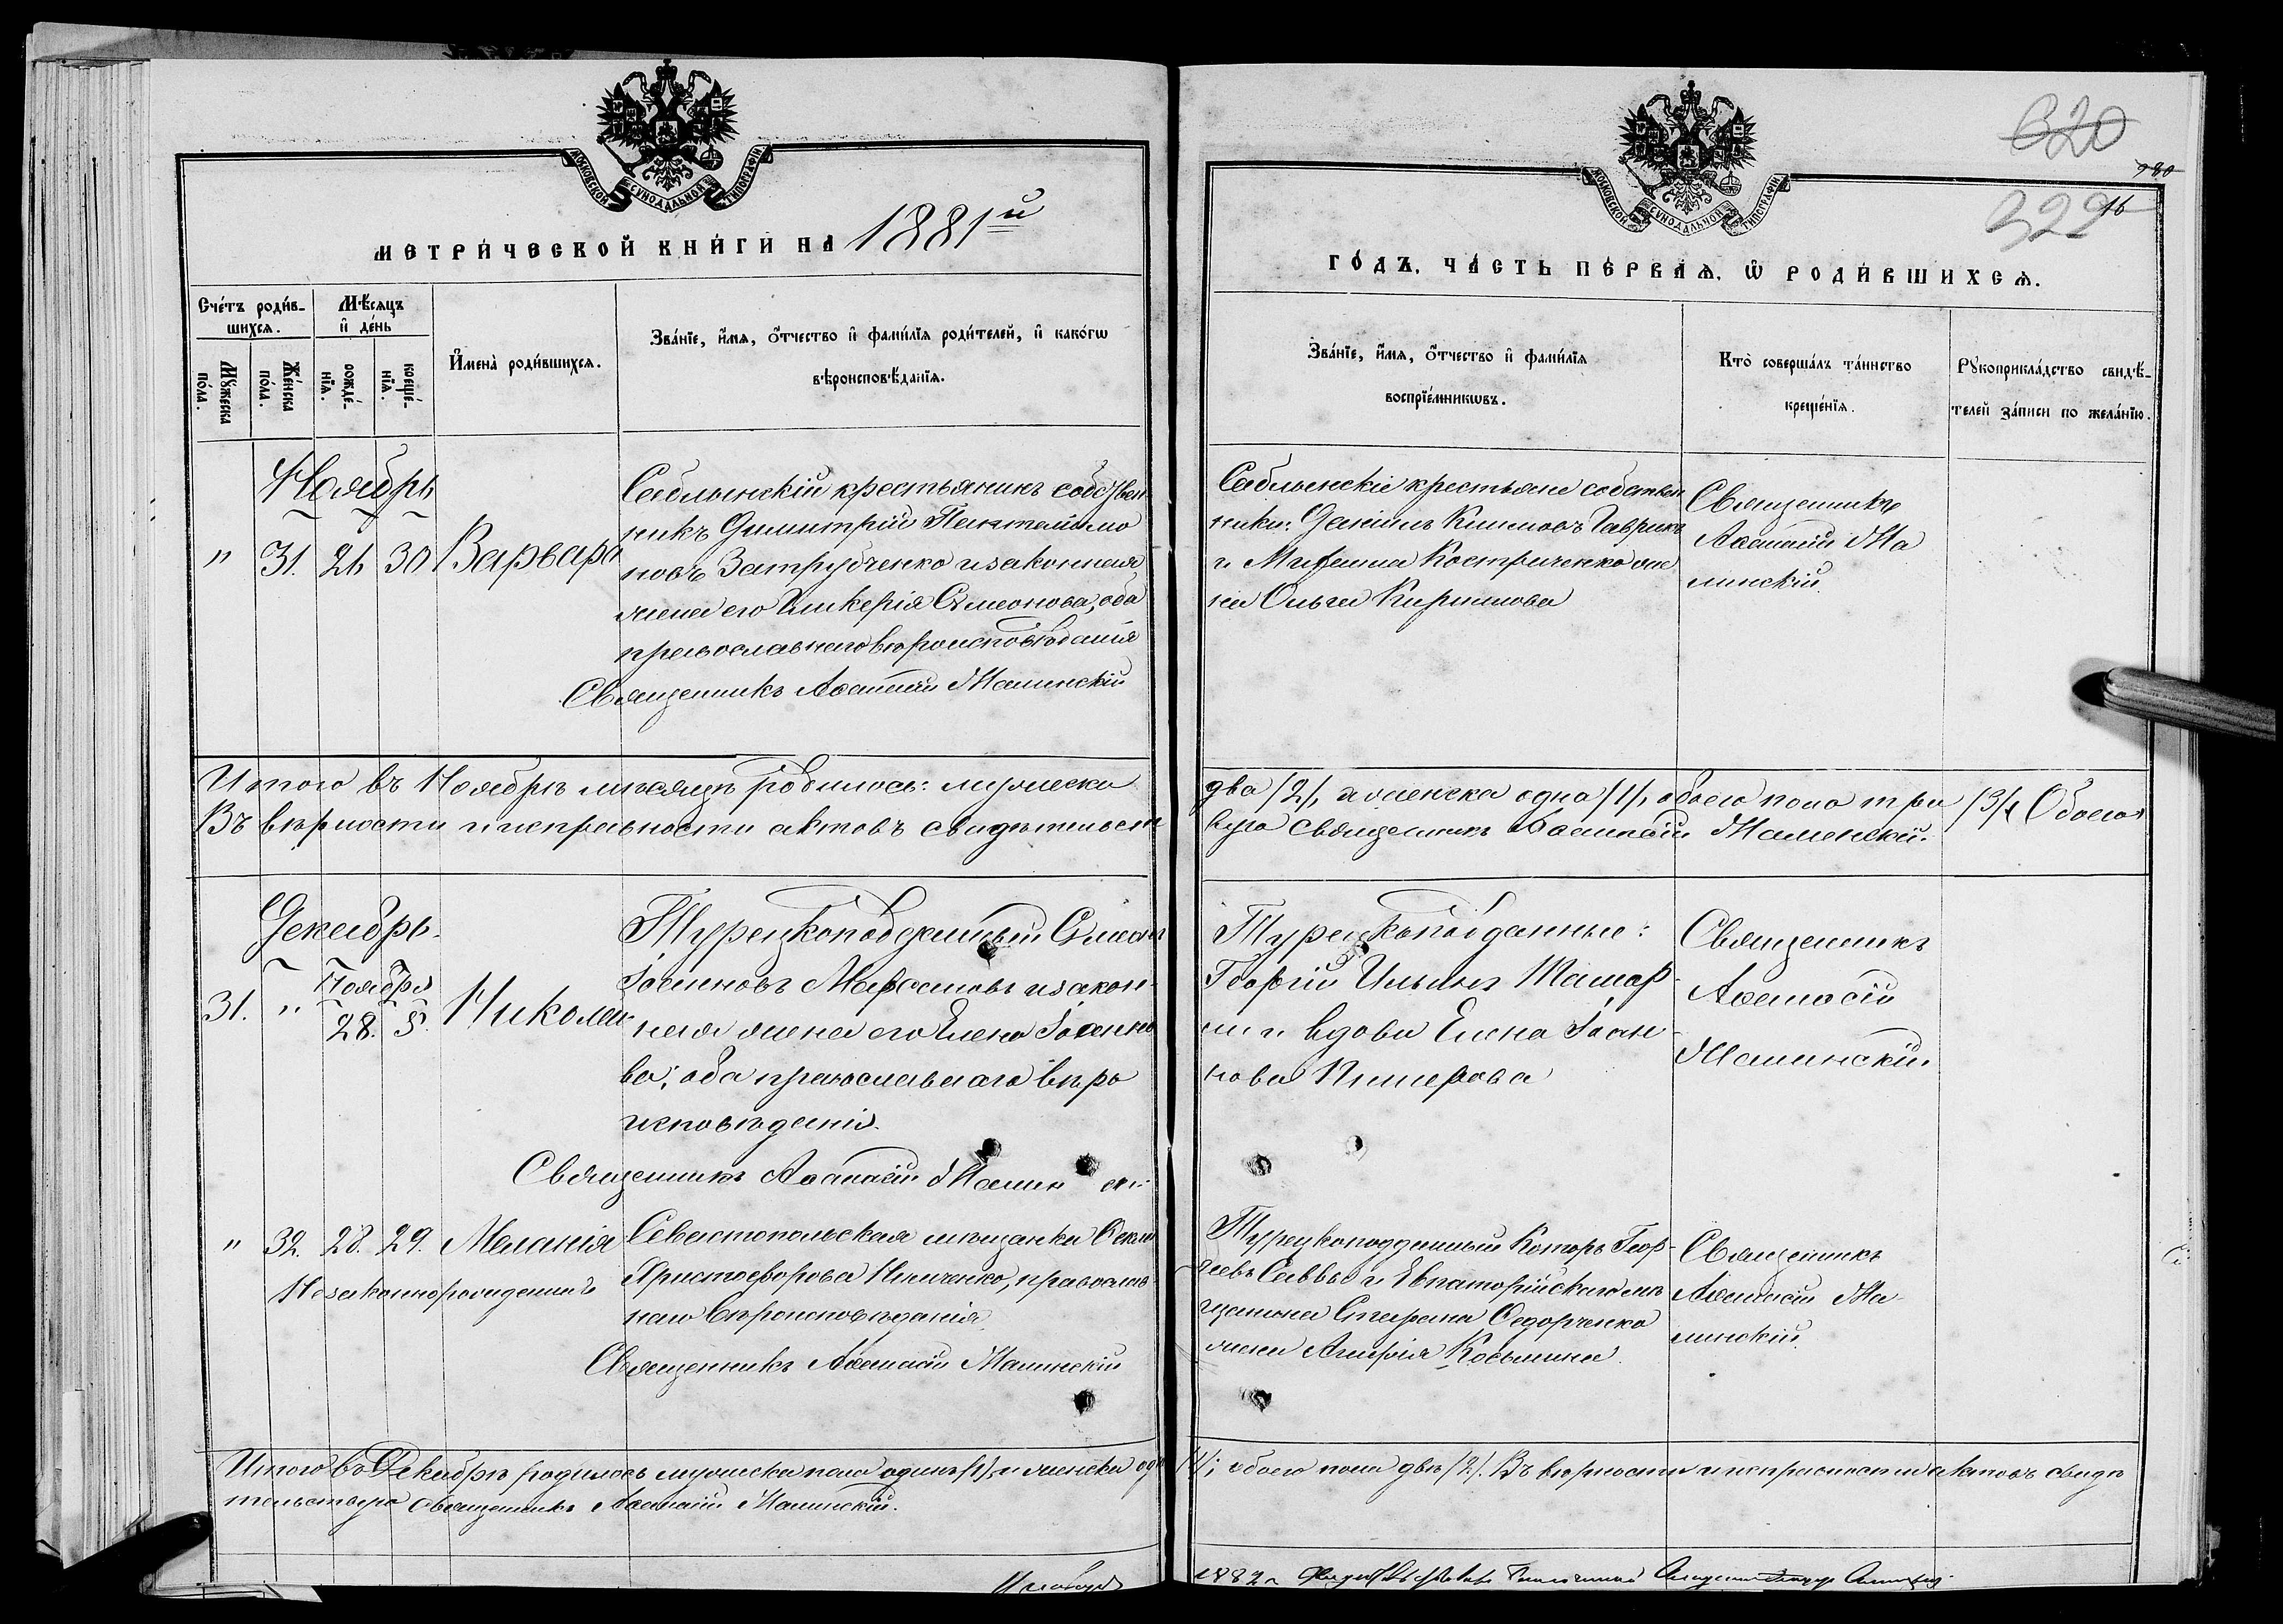 МОСКОВСКОЙ СѴНОДАЛЬНОЙ ТИПОГРАФІИ
МЕТРИ́ЧЕСКОЙ КНИ́ГИ НА 1881й
Сче́тъ роди́в-
шихся.
Мѣ́сяцъ
и҆ де́нь
Мꙋ́жеска
по́ла.
Же́нска
по́ла.
рожде́-
нїѧ.
креще́-
нїѧ.
И҆мена̀ роди́вшихсѧ.
Зва́нїе, и҆́мѧ, ѻ҆́тчество и҆ фами́лїѧ роди́телей, и҆ како́гѡ
вѣроисповѣ́данїѧ.
Ноябрь
" 31. 21 30 Варвара
Саблынскій крестьянинъ собствен
никъ Димитрій Пантелеимо
новъ Затрубченко и законная
жена его Гликерія Симеонова, оба
православнаго вѣроисповѣданія
Священникъ Аѳанасій Малинскій
Итого въ Ноябрѣ мѣсяцѣ родилось: мужеска
Въ вѣрности и исправности актовъ свидѣтельст
Декабрь.
Ноября
31. " 28. 5. Николай
Турецкоподданный Симеонъ
Іоанновъ и закон-
ная жена его Елена Іоанно
ва; оба православнаго вѣро
исповѣданія.
Священникъ Аѳанасій Малин
" 32. 28. 29. Меланія
Незаконнорожденная
Севастопольская мѣщанка Ѳекла
Христофорова православ
наго вѣроисповѣданія.
Священникъ Аѳанасій Малинскій
Итого въ Декабрѣ родилось мужеска пола одинъ /1/, и женска од
тельствую Священникъ Аѳанасій Малинскій.
620
980
322
16
МОСКОВСКОЙ СѴНОДАЛЬНОЙ ТИПОГРАФІИ
ГО́ДЪ, ЧА́СТЬ ПЕ́РВАѦ, Ѡ҆ РОДИ́ВШИХСѦ.
Зва́нїе, и҆́мѧ, ѻ҆́тчество и҆ фами́лїѧ
воспрїе́мникѡвъ.
Кто̀ соверша́лъ та́инство
креще́нїѧ.
Рꙋкоприкла́дство свидѣ́-
телей за́писи по жела́нїю.
Саблынскіе крестьяне собствен
ники: Даніилъ Климовъ Гаврикъ
и Костриченко же
на Ольга Кириллова
Священникъ
Аѳанасій Ма
линскій.
два /2/, женска одна /1/, обоего пола три /3/. Обоего
вую Священникъ Аѳанасій Малинскій.
Турецкоподданные:
Георгій Ильинъ
и вдова Елена Іоан-
нова
Священникъ
Аѳанасій
Малинскій.
Турецкоподданный Геор-
гіевъ Савва и Евпаторійскаго мѣ
щанина Стефана Сидорченко
жена Косьмина.
Священникъ
Аѳанасій Ма
линскій.
/1/; обоего пола двѣ /2/. Въ вѣрности и исправности актовъ свидѣ
1882 г.